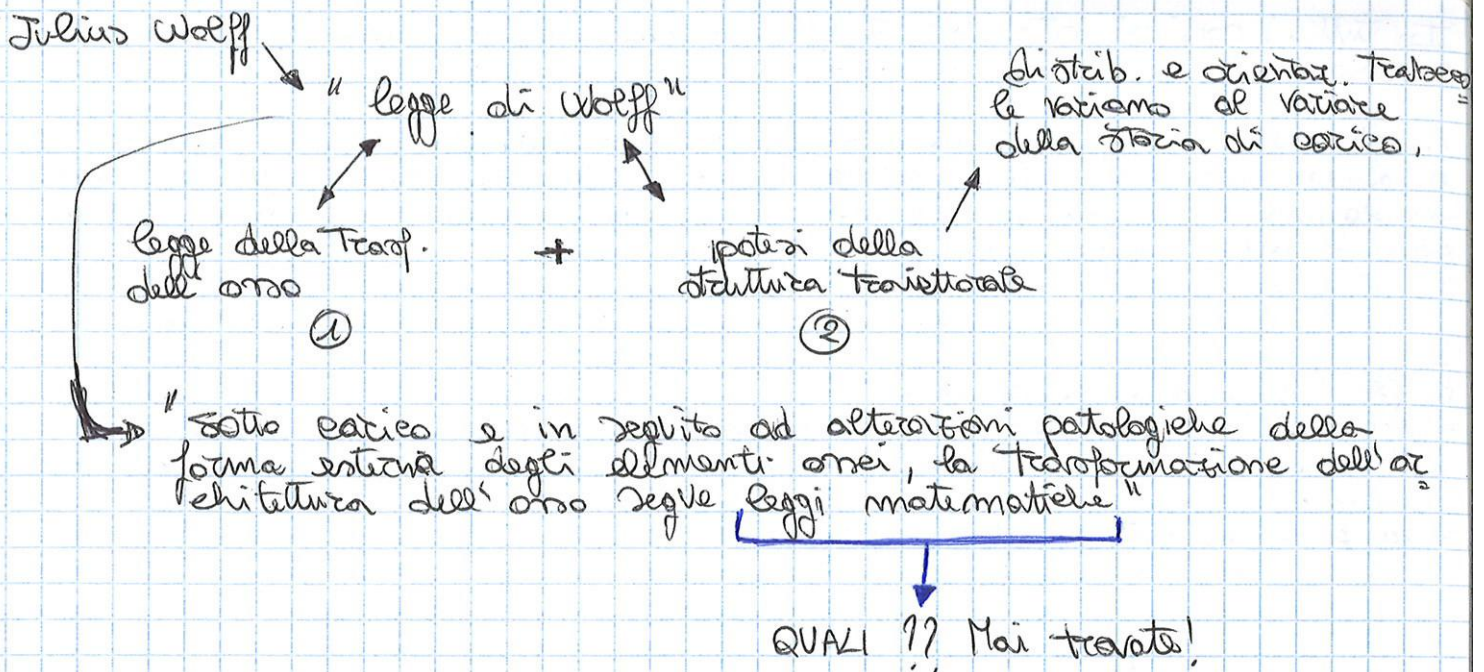 Julius Wolff
"legge di Wolff"
distrib. e orientaz. trabeco
le variano al variare
della storia di carico.
legge della Trasf.
dell'osso
+
ipotesi della
struttura traiettorale
1
2
"sotto carico e in seguito ad alterazioni patologiche della
forma esterna degli elementi ossei, la trasformazione dell'ar
chitettura dell'osso segue leggi matematiche"
QUALI ?? Mai trovate!